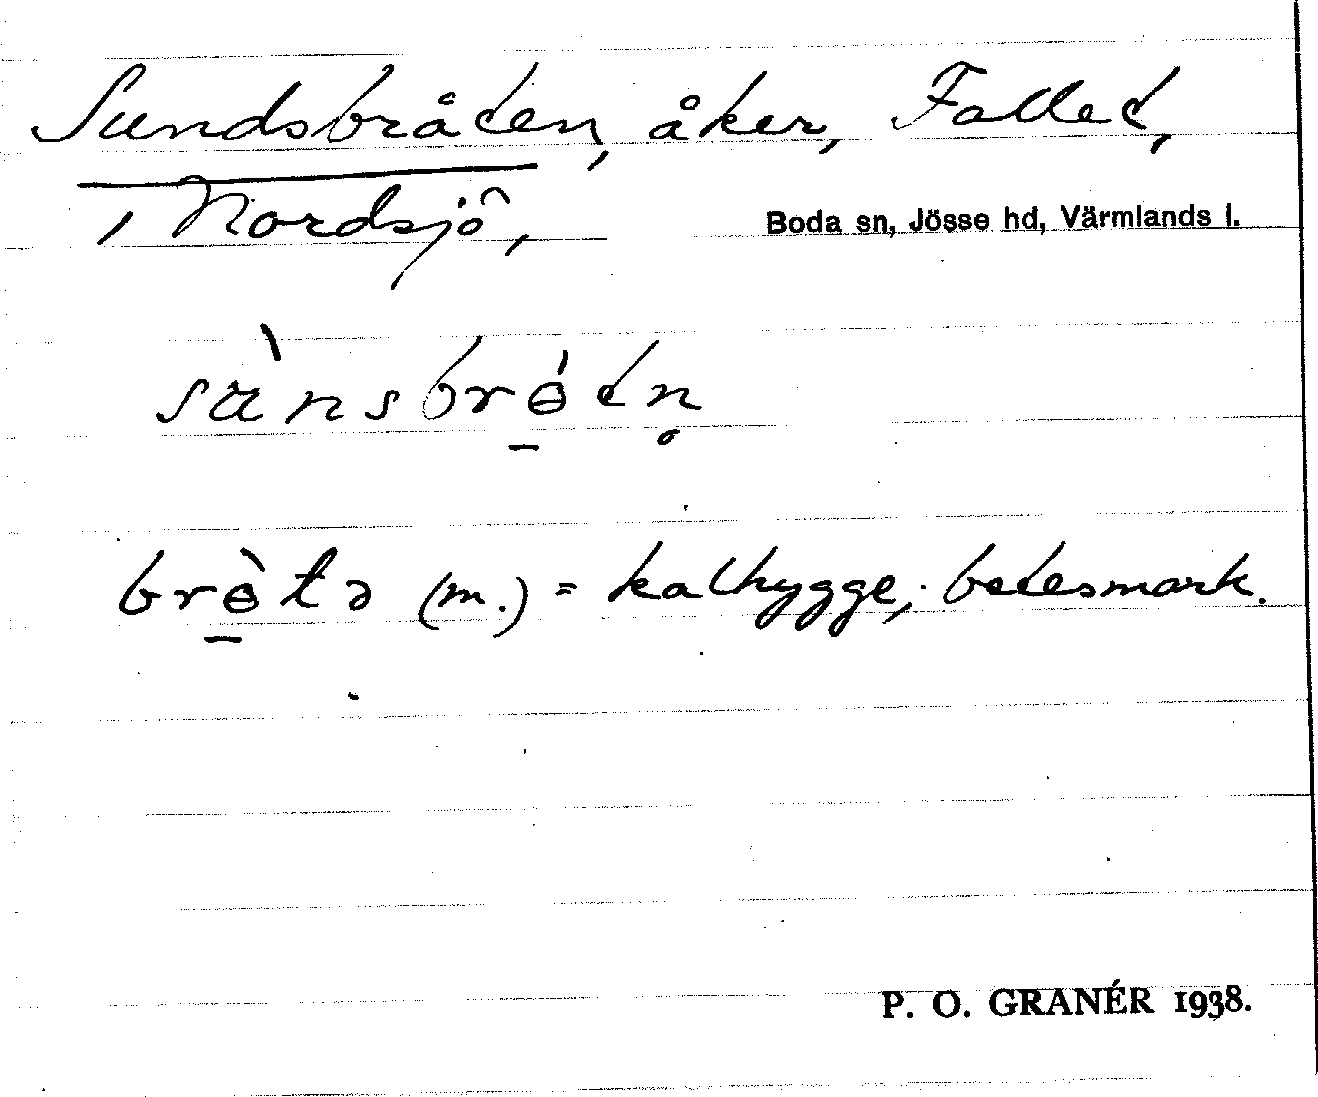 Sundsbråten, åker, Fallet,
i Nordsjö,
Boda sn, Jösse hd, Värmlands l.
sànsbrɵ́tn̥
brɵ̀tə (m.) = kalhygge; betesmark.
P. O. GRANÉR 1938.